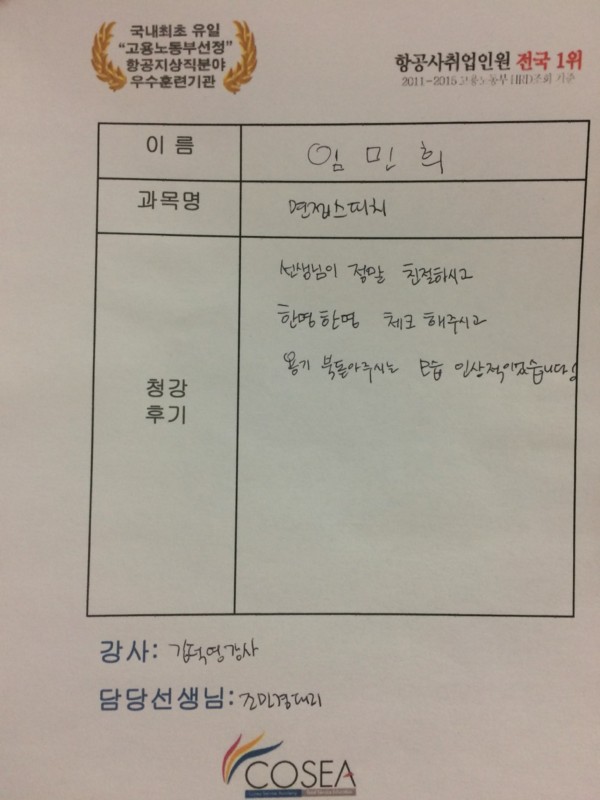 국내최초 유일
"고용노동부선정"
항공지상직분야
우수훈련기관
항공사취업인원 전국 1위
2011-2015 고용노동부 HRD조회 기준
이 름
임 민 희
과목명
면접스피치
선생님이 정말 친절하시고
한명한명 체크 해주시고
용기 북돋아주시는 모습 인상적이였습니다
청강
후기
강사: 김덕영강사
담당선생님: 조민경대리
COSEA